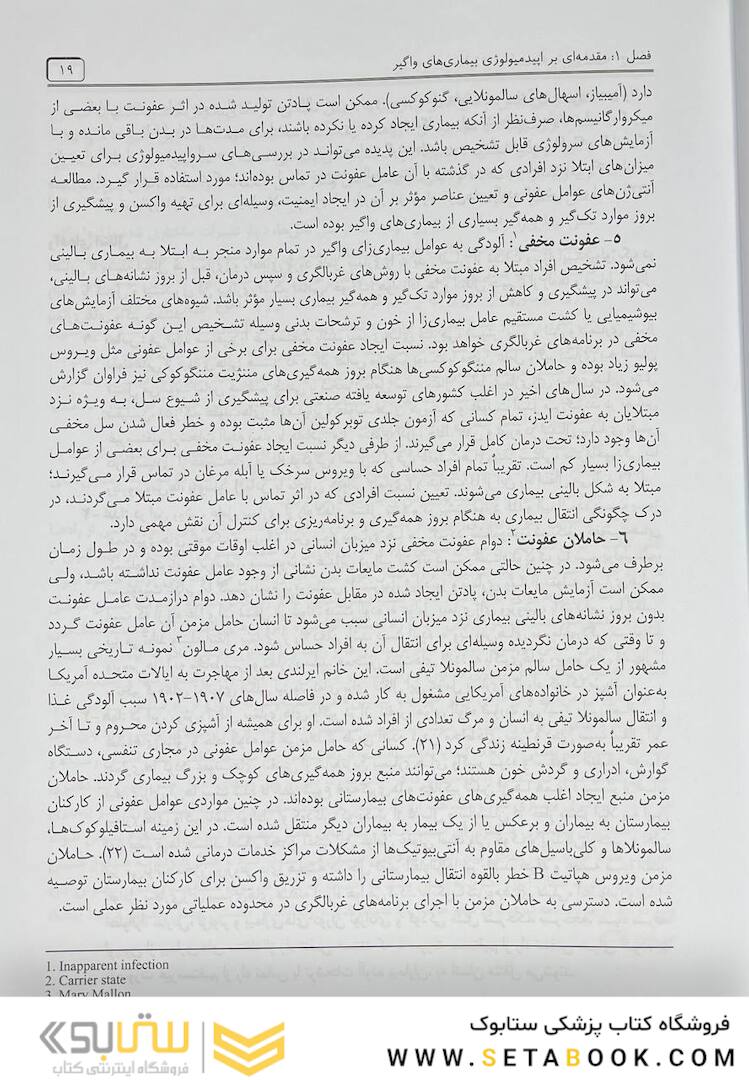 فصل ۱: مقدمه‌ای بر اپیدمیولوژی بیماری‌های واگیر
۱۹
دارد (آمیبیاز، اسهال‌های سالمونلایی، گنوکوکسی). ممکن است پادتن تولید شده در اثر عفونت با بعضی از
میکروارگانیسم‌ها، صرف‌نظر از آنکه بیماری ایجاد کرده یا نکرده باشند، برای مدت‌ها در بدن باقی مانده و با
آزمایش‌های سرولوژی قابل تشخیص باشد. این پدیده می‌تواند در بررسی‌های سرواپیدمیولوژی برای تعیین
میزان‌های ابتلا نزد افرادی که در گذشته با آن عامل عفونت در تماس بوده‌اند؛ مورد استفاده قرار گیرد. مطالعه
آنتی‌ژن‌های عوامل عفونی و تعیین عناصر مؤثر بر آن در ایجاد ایمنیت، وسیله‌ای برای تهیه واکسن و پیشگیری از
بروز موارد تک‌گیر و همه‌گیر بسیاری از بیماری‌های واگیر بوده است.
۵- عفونت مخفی۱: آلودگی به عوامل بیماری‌زای واگیر در تمام موارد منجر به ابتلا به بیماری بالینی
نمی‌شود. تشخیص افراد مبتلا به عفونت مخفی با روش‌های غربالگری و سپس درمان، قبل از بروز نشانه‌های بالینی،
می‌تواند در پیشگیری و کاهش از بروز موارد تک‌گیر و همه‌گیر بیماری بسیار مؤثر باشد. شیوه‌های مختلف آزمایش‌های
بیوشیمیایی یا کشت مستقیم عامل بیماری‌زا از خون و ترشحات بدنی وسیله تشخیص این گونه عفونت‌های
مخفی در برنامه‌های غربالگری خواهد بود. نسبت ایجاد عفونت مخفی برای برخی از عوامل عفونی مثل ویروس
پولیو زیاد بوده و حاملان سالم مننگوکوکسی‌ها هنگام بروز همه‌گیری‌های مننژیت مننگوکوکی نیز فراوان گزارش
می‌شود. در سال‌های اخیر در اغلب کشورهای توسعه یافته صنعتی برای پیشگیری از شیوع سل، به ویژه نزد
مبتلایان به عفونت ایدز، تمام کسانی که آزمون جلدی توبرکولین آن‌ها مثبت بوده و خطر فعال شدن سل مخفی
آن‌ها وجود دارد؛ تحت درمان کامل قرار می‌گیرند. از طرفی دیگر نسبت ایجاد عفونت مخفی برای بعضی از عوامل
بیماری‌زا بسیار کم است. تقریباً تمام افراد حساسی که با ویروس سرخک یا آبله مرغان در تماس قرار می‌گیرند؛
مبتلا به شکل بالینی بیماری می‌شوند. تعیین نسبت افرادی که در اثر تماس با عامل عفونت مبتلا می‌گردند، در
درک چگونگی انتقال بیماری به هنگام بروز همه‌گیری و برنامه‌ریزی برای کنترل آن نقش مهمی دارد.
۶- حاملان عفونت۲: دوام عفونت مخفی نزد میزبان انسانی در اغلب اوقات موقتی بوده و در طول زمان
برطرف می‌شود. در چنین حالتی ممکن است کشت مایعات بدن نشانی از وجود عامل عفونت نداشته باشد، ولی
ممکن است آزمایش مایعات بدن، پادتن ایجاد شده در مقابل عفونت را نشان دهد. دوام درازمدت عامل عفونت
بدون بروز نشانه‌های بالینی بیماری نزد میزبان انسانی سبب می‌شود تا انسان حامل مزمن آن عامل عفونت گردد
و تا وقتی که درمان نگردیده وسیله‌ای برای انتقال آن به افراد حساس شود. مری مالون۳ نمونه تاریخی بسیار
مشهور از یک حامل سالم مزمن سالمونلا تیفی است. این خانم ایرلندی بعد از مهاجرت به ایالات متحده آمریکا
به‌عنوان آشپز در خانواده‌های آمریکایی مشغول به کار شده و در فاصله سال‌های ۱۹۰۷-۱۹۰۲ سبب آلودگی غذا
و انتقال سالمونلا تیفی به انسان و مرگ تعدادی از افراد شده است. او برای همیشه از آشپزی کردن محروم و تا آخر
عمر تقریباً به‌صورت قرنطینه زندگی کرد (۲۱). کسانی که حامل مزمن عوامل عفونی در مجاری تنفسی، دستگاه
گوارش، ادراری و گردش خون هستند؛ می‌توانند منبع بروز همه‌گیری‌های کوچک و بزرگ بیماری گردند. حاملان
مزمن منبع ایجاد اغلب همه‌گیری‌های عفونت‌های بیمارستانی بوده‌اند. در چنین مواردی عوامل عفونی از کارکنان
بیمارستان به بیماران و برعکس یا از یک بیمار به بیماران دیگر منتقل شده است. در این زمینه استافیلوکوک‌ها،
سالمونلاها و کلی‌باسیل‌های مقاوم به آنتی‌بیوتیک‌ها از مشکلات مراکز خدمات درمانی شده است (۲۲). حاملان
مزمن ویروس هپاتیت B خطر بالقوه انتقال بیمارستانی را داشته و تزریق واکسن برای کارکنان بیمارستان توصیه
شده است. دسترسی به حاملان مزمن با اجرای برنامه‌های غربالگری در محدوده عملیاتی مورد نظر عملی است.
1. Inapparent infection
2. Carrier state
3. Mary Mallon
فروشگاه کتاب پزشکی ستابوک
WWW.SETABOOK.COM
ستابوک
فروشگاه اینترنتی کتاب